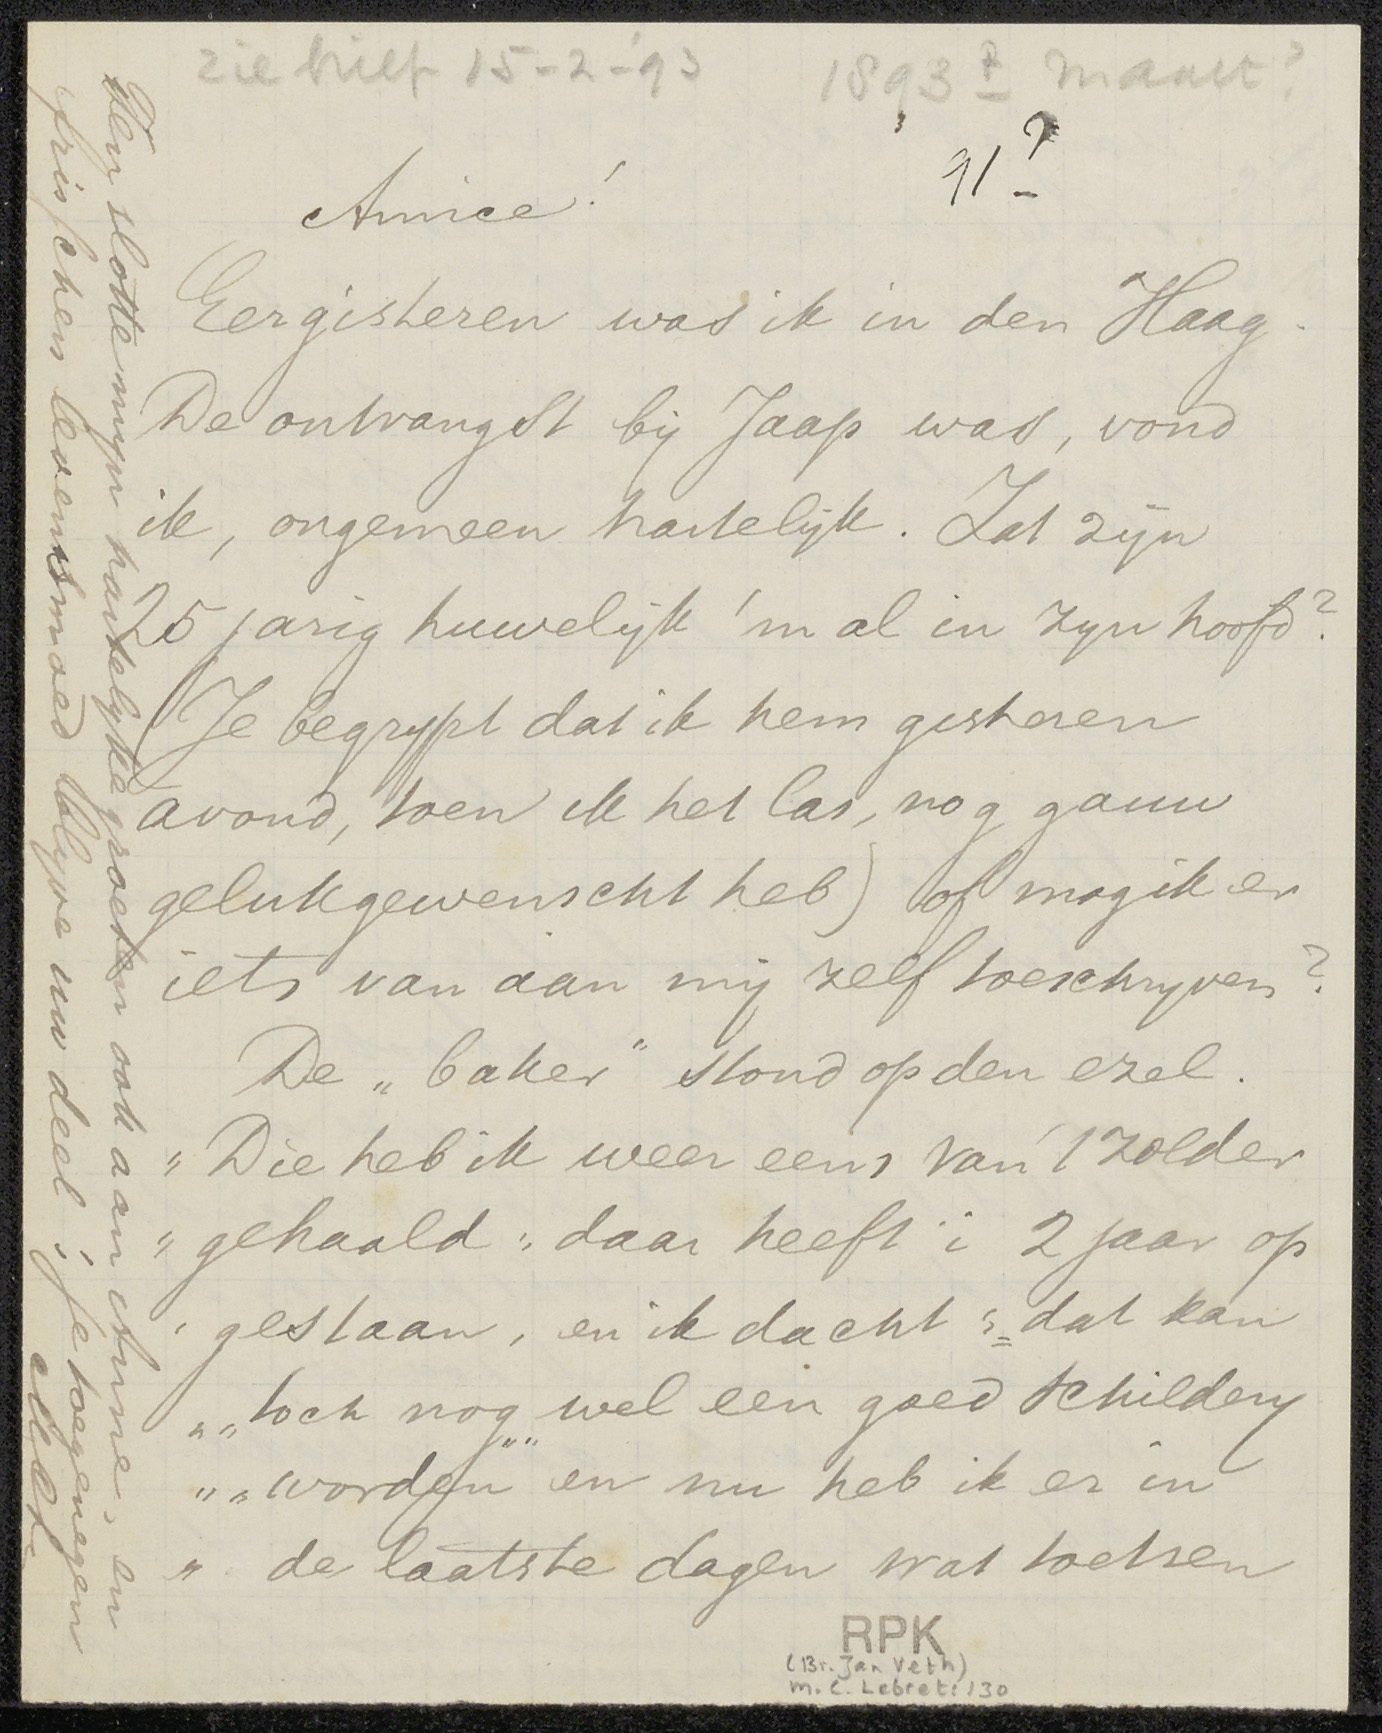 zie brief 15-2-'93
1893? maart?
91?
Amice!
Eergisteren was ik in den Haag.
De ontvangst bij Jaap was, vond
ik, ongemeen hartelijk. Zat zijn
25 jarig huwelijk 'm al in zyn hoofd?
(Je begrypt dat ik hem gisteren
avond, toen ik het las, nog gauw
gelukgewenscht heb) of mag ik er
iets van aan mij zelf toeschryven?
De „baker" stond op den ezel.
"Die heb ik weer eens van 't zolder
"gehaald; daar heeft i 2 jaar op
"gestaan, en ik dacht: dat kan
""toch nog wel een goed schildery
""worden"" en nu heb ik er in
" de laatste dagen wat toetsen
Ten slotte myn hartelyke groeten ook aan Anna, en
frisschen levensmoed blyve uw deel; je toegenegen
RPK
(Br. Jan Veth)
M. C. Lebret: 130